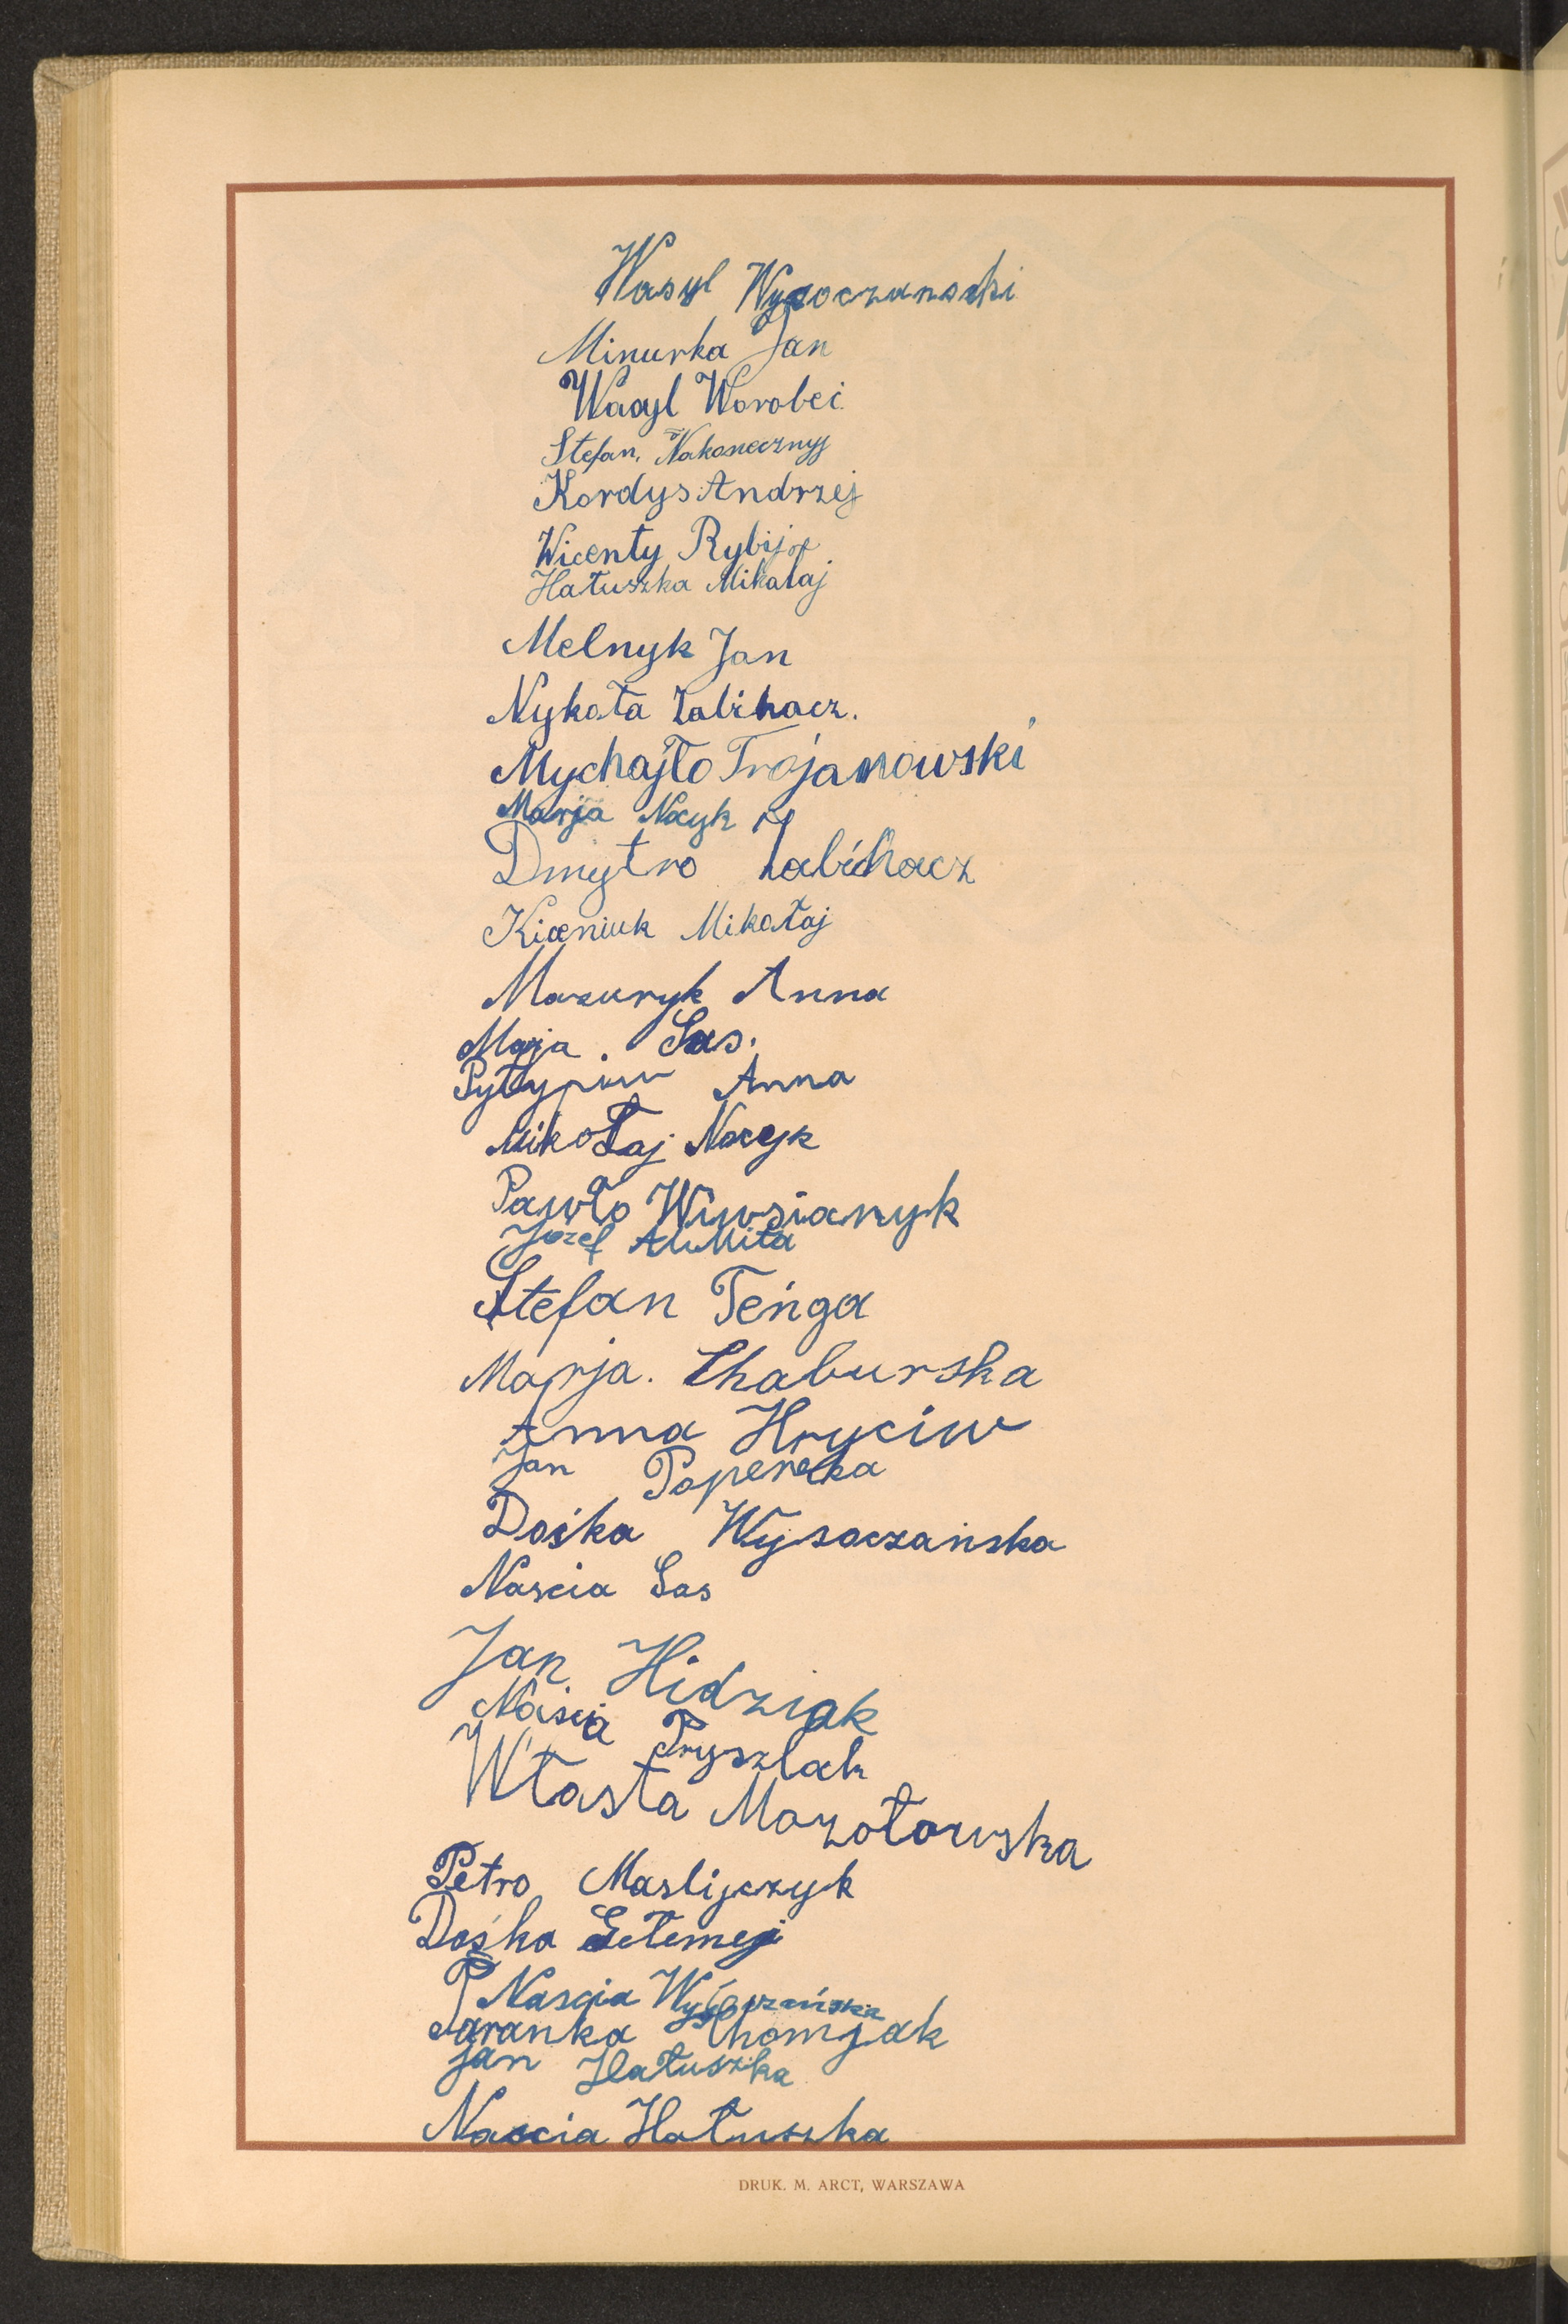 Wasyl Wysoczanski
Minurka Jan
Wasyl Worobec
Stefan Nakonecznyj
Kordys Andrzej
Wicenty Rybij
Hałuszka Mikałaj
Melnyk Jan
Nykoła Labihacz.
Mychajło Trojanowski
Marja Nocyk
Dmytro Labihacz
Kiceniuk Mikołaj
Mazuryk Anna
Marja. Sas.
Anna
Mikołaj Nocyk
Pawło Wiwsianyk
Jozef
Stefan Tenga
Marja. Chaburska
Anna Hryciw
Jan Papereka
Dośka Wysoczańska
Nascia Sas
Jan Hidziak
Naścia Pryszlak
Własta Mozołowska
Petro Maslijczyk
Dośka
Nascia Wysoczańska
Paranka Chomjak
Jan Hałuszka
Nascia Hałuszka
DRUK. M. ARCT, WARSZAWA